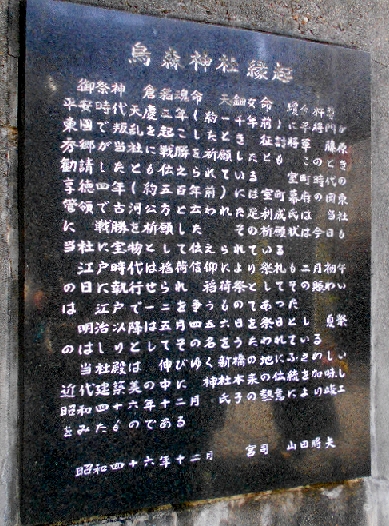 烏森神社縁起
御祭神 倉稲魂命 天鈿女命 瓊々杵尊
平安時代天慶三年(約一千年前)に平将門が
東国で叛乱を起こしたとき 征討将軍 藤原
秀郷が当社に戦勝を祈願したとも このとき
勧請したとも伝えられている 室町時代の
享徳四年(約五百年前)には室町幕府の関東
管領で古河公方と云われた足利成氏は 当社
に 戦勝を祈願した その祈願状は今日も
当社に宝物として伝えられている
江戸時代は稲荷信仰により祭礼も二月初午
の日に執行せられ 稲荷祭としてその賑わい
は 江戸で一二を争うものであった
明治以降は五月四五六日を祭日とし 夏祭
のはしりとしてその名をうたわれている
当社殿は 伸びゆく新橋の地にふさわしい
近代建築美の中に 神社本来の伝統を加味し
昭和四十六年十二月 氏子の熱意により竣工
をみたものである
昭和四十六年十二月 宮司 山田昭夫